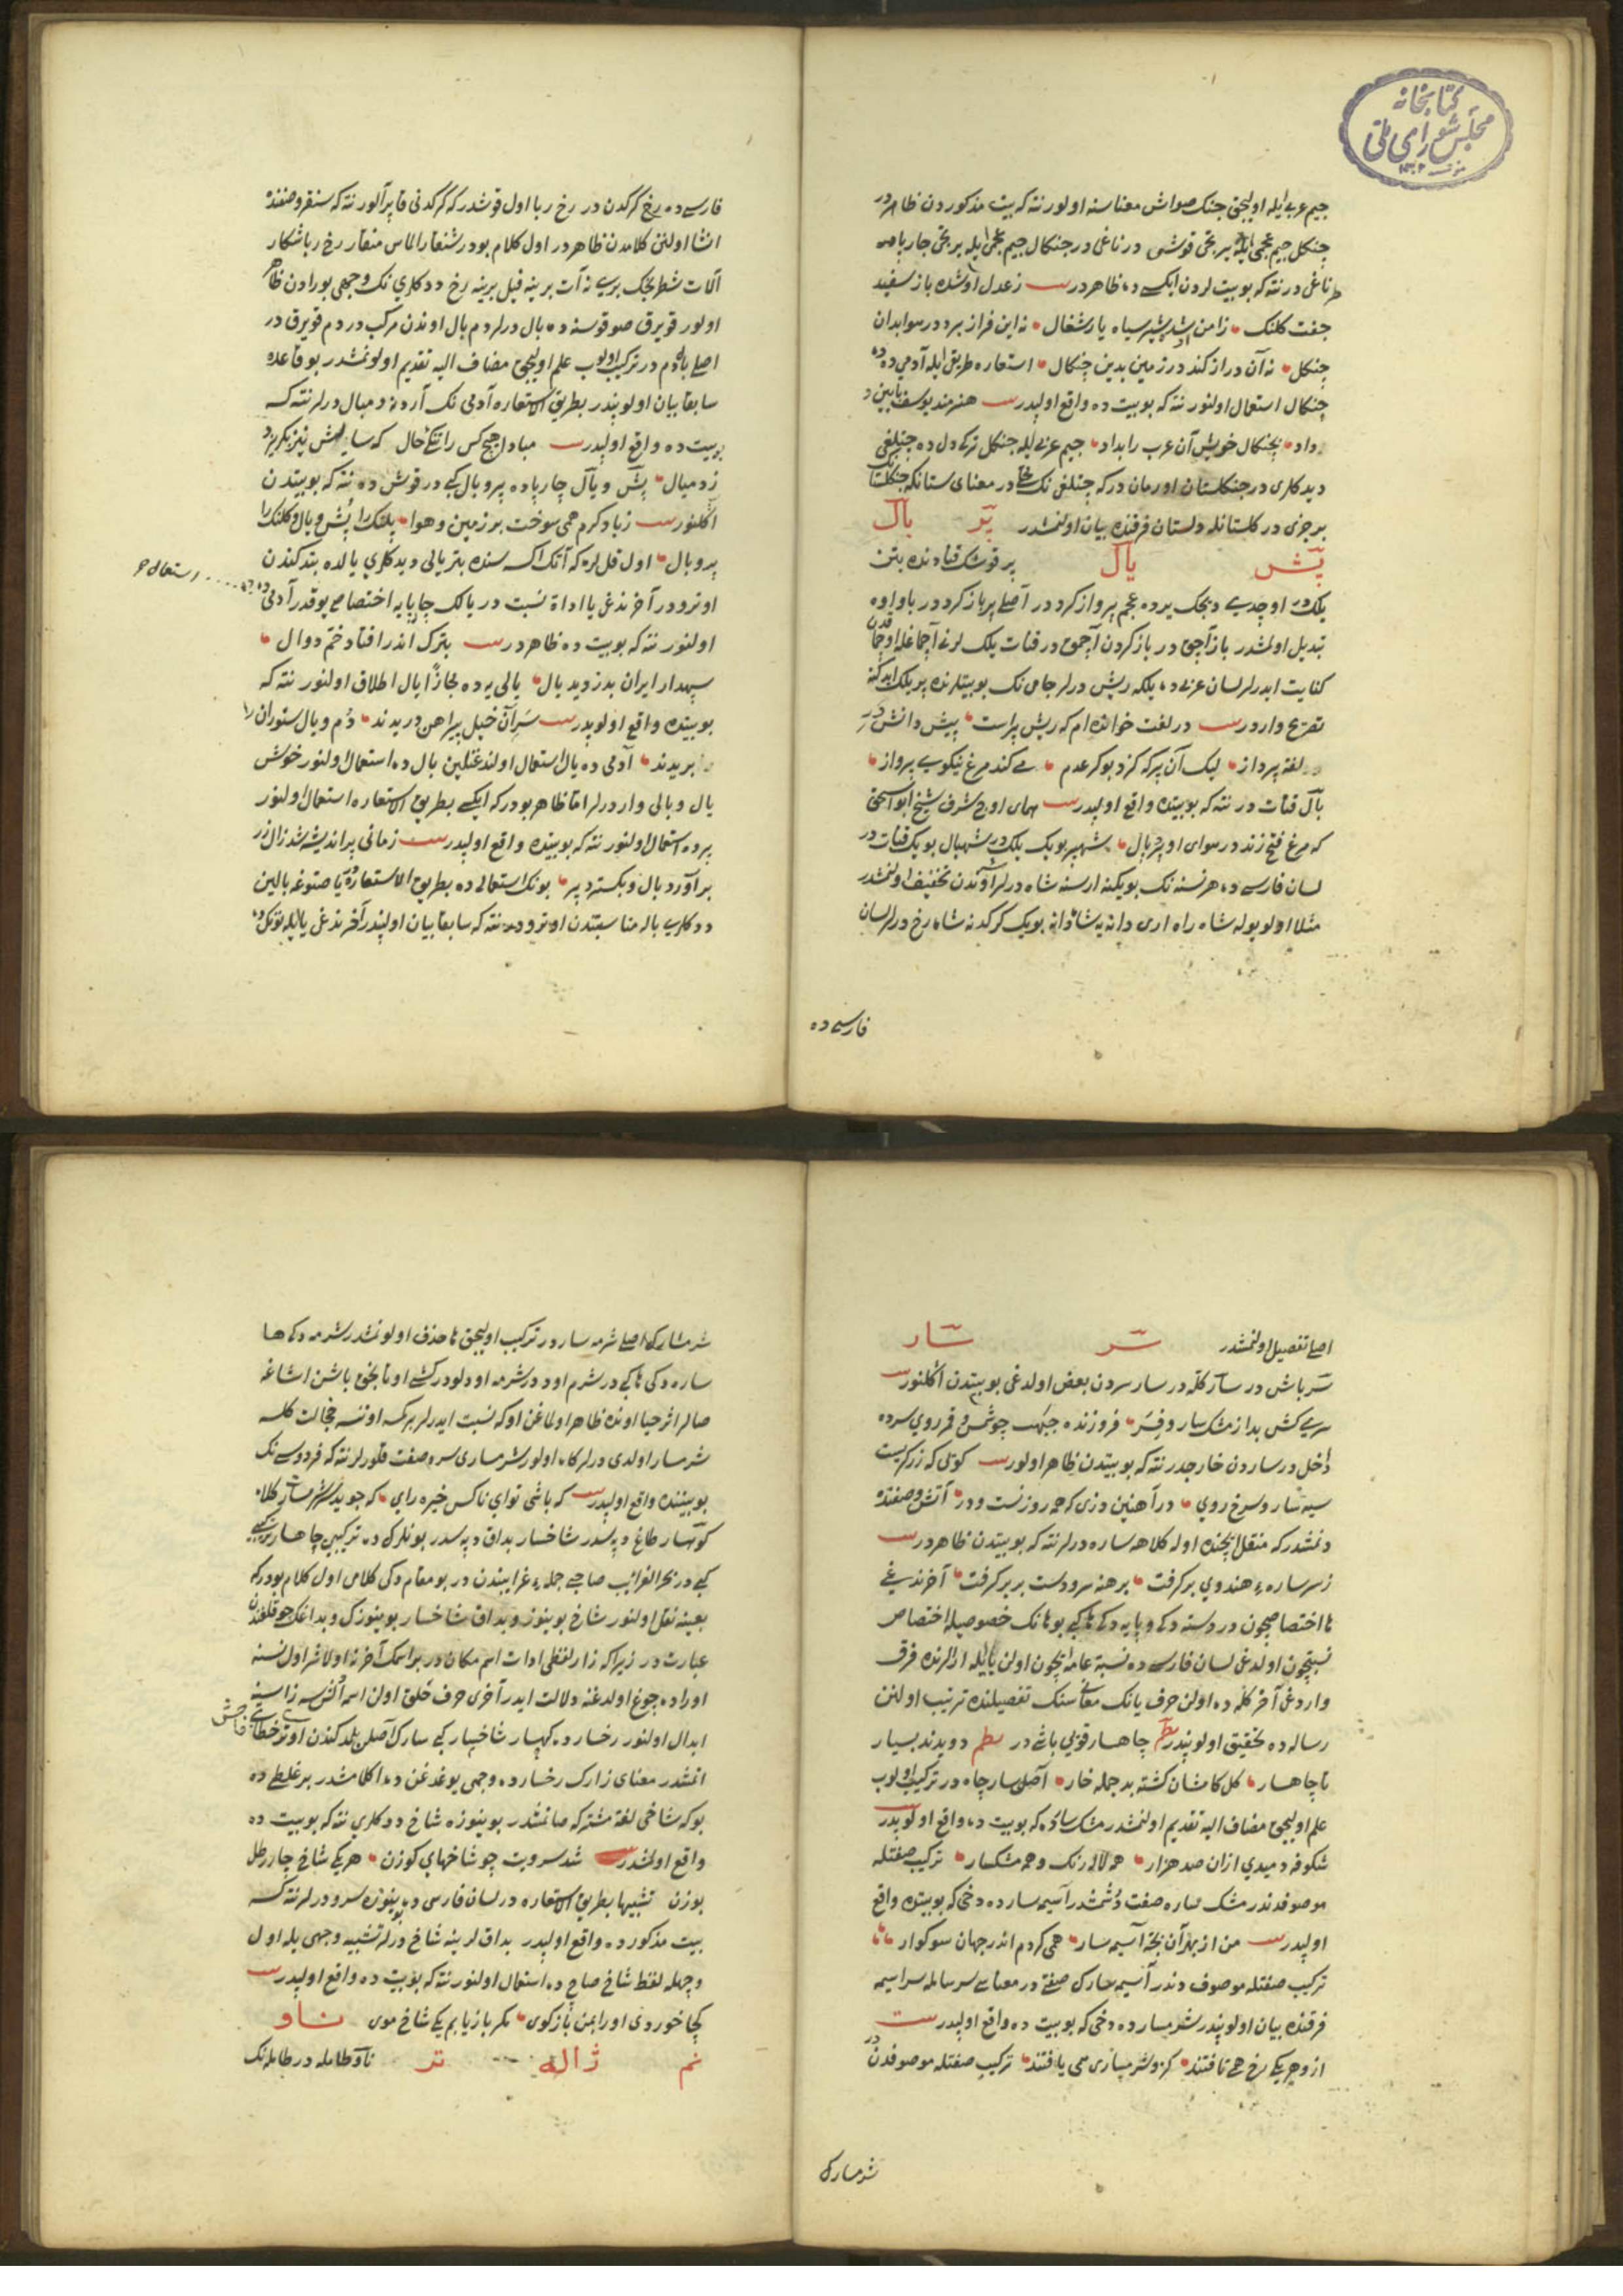 کتابخانه
مجلس شورای ملی
جیم عربی ایله اولیجق جنک صواش معناسنه اولور نته که بیت مذکوردن ظاهردر
چنکل جیم عجمی ایله بر یخی قوشی در ناغی در چنکال جیم عجمی ایله یرتجی جارپا
طرناغی در نته که بو بیت لردن ایکیسی ده ظاهردر زعدل او شده باز سفید
جفت کلنک زامن شیر سیاه یار شغال نه این فراز برد در هوا بدان
چنکل نه آن دراز کند در زمین بدین چنکال استعاره طریق ایله آدمی ده
چنکال استعمال اولنور نته که بو بیت ده واقع اولیدر هنرمند یوسف
داد بچنکال خویش آن عرب را بداد جیم عربی ایله جنکل ترکی دل ده
دیدکلری در جنکلستان اورمان در که معنای ستانکه
بر جزی در کلستانله دلستان فرقنده بیان اولنمشدر پر بال
پش یال پر قوشک قنادنده بتن
یلک در عجم پرواز کرد در اصلی پر باز کرد در با واوه
تبدیل اولمشدر باز آچق در باز کردن آچمق در قنات یلک لرنی آچماغله اوچماقدن
کنایت ایدرلر لسان عربی ده یلکه ریش درلر جامی نک بو بیتلرنده پر یلک ایدکنه
تصریح واردر در لغت خوانده ام که ریش پراست پیش دانش ور
لغه پرداز لیک آن پر که کزد بوکر عدم می کند مرغ نیکویی پرواز
بال قنات در نته که بو بیتده واقع اولیدر همای اوج شرف شیخ ابو اسحق
که مرغ فتح زند در هوای او پر بال شهپر بویک یلک در شهبال بویک قنات در
لسان فارسی ده هر نسنه نک بویکینه ارسنه شاه درلر آوندن تخفیف اولنمشدر
مثلا اولو یوله شاه راه اری دانه یه شاه دانه بویک کرکدنه شاه رخ درلر لسان
فارسی ده
فارسی ده رخ کرکدن در رخ ربا اول قوشدر که کرکدنی قاپر آلور نته که سنقر وصفنده
انشا اولنن کلامدن ظاهردر اول کلام بودر شنقار الماس منقار رخ ربا شکار
آلات شطرنجک بری نه آت برینه فیل برینه رخ ددکلری نک وجهی بورادن ظاهر
اولور قویرق صوقوسنه ده بال درلر دم بال اوندن مرکب در دم قویرق در
اصلی بال دم در ترکیب اولوب علم اولیجق مضاف الیه تقدیم اولونمشدر بو قاعده
سابقا بیان اولونپدر بطریق الاستعاره آدمی نک آردنه دمبال درلر نته که
بو بیت ده واقع اولیدر مبادا هیچ کس را تنکی حال که سایه اش نیز بکریزد
ز دمبال پش و یال چارپاده پر و بال کبی در قوش ده نته که بو بیتدن
اکلنور زباد کرم همی سوخت بر زمین و هوا پلنک را پش و یال و کلنک را
پر و بال اول قل لره که آتک اکسه سنده بتر یالی دیدکلری یالده بتدکندن
اوترو در آخرنده غی یا اداة نسبت در یالک چارپایه اختصاصی یوقدر آدمی ده ده استعمال
اولنور نته که بو بیت ده ظاهردر بترک اندر افتاد خم دوال
سپهدار ایران بدزدید یال یالی یه ده مجازا یال اطلاق اولنور نته که
بو بیتده واقع اولوبدر سران خیل پیراهن دریدند دم و یال ستوران را
بریدند آدمی ده یال استعمال اولندغنلین بال ده استعمال اولنور خوش
یال و بالی وار درلر اما ظاهر بودر که ایکیسی بطریق الاستعاره استعمال اولنور
پر ده استعمال اولنور نته که بو بیتده واقع اولیدر زمانی پر اندیشه شد زال زر
برآورد بال و بکسترد پر بونک استعمالی ده بطریق الاستعاره یاصتوغه بالین
ددکلری باله مناسبتدن اوترو در نته که سابقا بیان اولنپدر آخرنده غی یا ایله نونک ده
اصلی تفصیل اولنمشدر سر سار
سر باش در سار کله در سار سردن بعض اولدغی بو بیتدن اکلنور
سری کش بد از مشک سار و فسر فروزنده جبهت چو شمس و قمر روی سرده
داخل در ساردن خارجدر نته که بو بیتدن ظاهر اولور کوئی که زرکریست
سیه سار و سرخ روی در آهنین دزی که همه روز نست و در آتش وصفنده
دنمشدر که منقل ایچنده اوله کلاهه ساره درلر نته که بو بیتدن ظاهردر
زسر ساره هندوی برکرفت برهنه سر و دست بر برکرفت آخرنده غی
ها اختصاصیچون در دسته ده کی و پایه ده کی ها کبی بو هانک خصوصیله اختصاص
نسبتچون اولدغی لسان فارسی ده نسبة عامه ایچون اولن یا ایله ارالرنده فرق
واردغی آخر کلمه ده اولن حرف یانک معانی سنک تفصیلنده ترتیب اولنن
رساله ده تحقیق اولونپدر چاهسار قویی باشی در نظم دویدند بسیار
تا چاهسار کل کامشان کشته بد جمله خار اصلی سار چاه در ترکیب اولوب
علم اولیجق مضاف الیه تقدیم اولنمشدر مشک ساره که بو بیت ده واقع اولوبدر
شکوفه دمیدی ازان صد هزار همه لاله رنک و همه مشکسار ترکیب صفتله
موصوفدندر مشک ساره صفت دنمشدر آسیمه سارده دخی که بو بیتده واقع
اولیدر من از بهر آن بچه آسیمه سار همی کردم اندر جهان سوکوار
ترکیب صفتله موصوف دندر آسیمه سارک صفتی در معنای سرسامله سراسیمه
فرقنده بیان اولونپدر شرمسارده دخی که بو بیت ده واقع اولیدر
از و هر یکی رخ همی تافتند کزو شرمساری همی یافتند ترکیب صفتله موصوفدن در
شرمسارک
شرمسارک اصلی شرمه سار در ترکیب اولیجق ها حذف اولونمشدر شرمه ده کی ها
ساره ده کی ها کبی در شرم اود در شرمه اودلو در کشی اوتانیجق باشن اشاغه
صالر اثر حیا اونده ظاهر اولماغن اوکه نسبت ایدرلر بر کمسه اوتنسه خجالت کلسه
شرمسار اولدی درلر کاه اولور شرمساری سره صفت قلورلر نته که فردوسی نک
بو بیتنده واقع اولیدر که باشی توای ناکس خیره رای که جوید سر شرمسارت کلاه
کوهسار طاغ دپه سدر شاخسار بداق دپه سدر بونلرک ده ترکیبی چاهسار ترکیبی
کبی در بحر الغرایب صاحبی جمله غرایبندن در بو مقام ده کی کلامی اول کلام بودر که
بعینه نقل اولنور شاخ بوینوز و بداق شاخسار بوینوزک و بداغک چوقلغندن
عبارت در زیرا که زار لفظی ادات اسم مکان در بر اسمک آخرنه اولاشر اول نسنه
اوراده چوغ اولدغنه دلالت ایدر آخری حرف حلق اولن اسم اکرسه زا سینه
ابدال اولنور رخسار ده کهسار شاخسار کبی سارک اصلن بلمدکندن اوتری خطای فاحش
اتمشدر معنای زارک رخسارده وجهی یوغدغن ده اکلامشدر بر غلطی ده
بو که شاخی لغة مشترکه صانمشدر بوینوزه شاخ ددکلری نته که بو بیت ده
واقع اولمشدر شد سرویت چو شاخهای کوزن هر یکی شاخ چار رطل
بوزن تشبیها بطریق الاستعاره در لسان فارسی ده بوینوزه سرو درلر نته که
بیت مذکورده واقع اولیدر بداق لرینه شاخ درلر تشبیه وجهی یله اول
وجهله لفظ شاخ صاچ ده استعمال اولنور نته که بو بیت ده واقع اولیدر
کجا خوردی اورا بمن بازکوی مکر باز یابم یکی شاخ موی ناو
نم ژاله تر ناو طامله در طامله نک